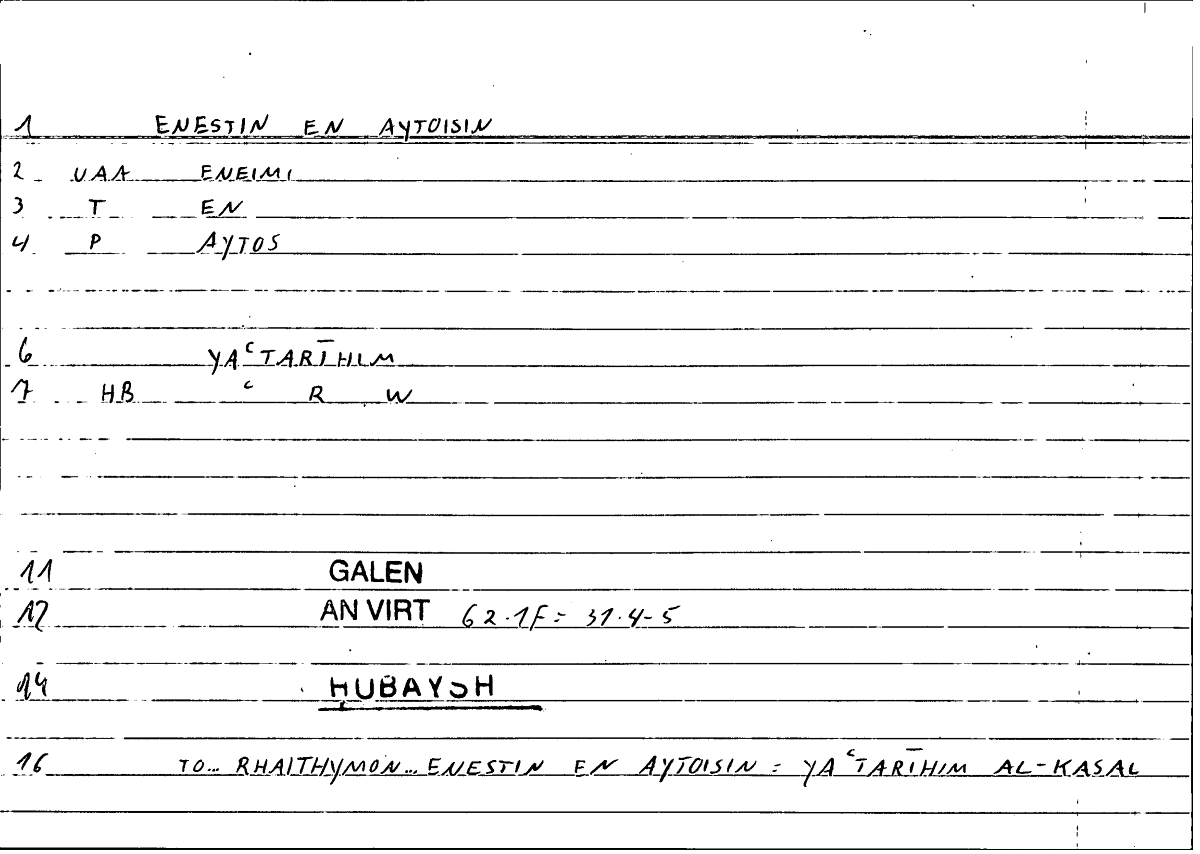 1 ENESTIN EN AYTOISIN
2 VAA ENEIMI
3 T EN
4 P AYTOS
6 YAᶜTARĪHIM
7 HB ᶜ R W
11 GALEN
12 AN VIRT 62.1F= 31.4-5
14 ḤUBAYSH
16 TO... RHAITHYMON... ENESTIN EN AYTOISIN = YAᶜTARĪHIM AL-KASAL